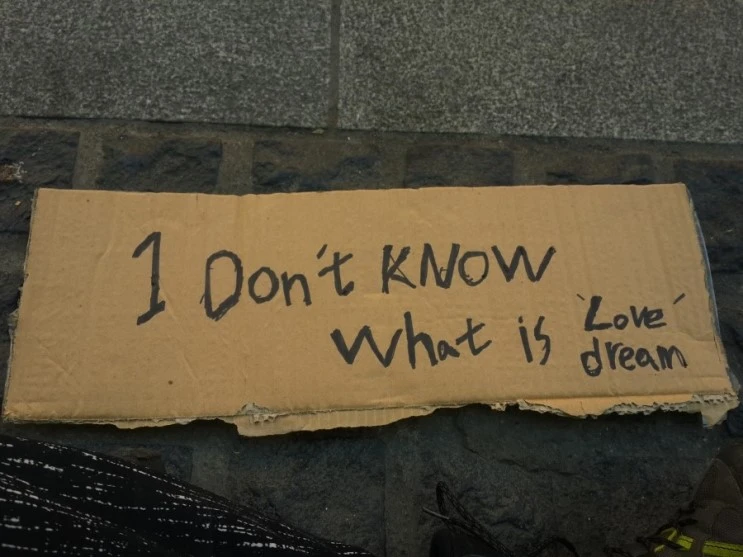 I Don't KNOW
What is 'Love'
dream